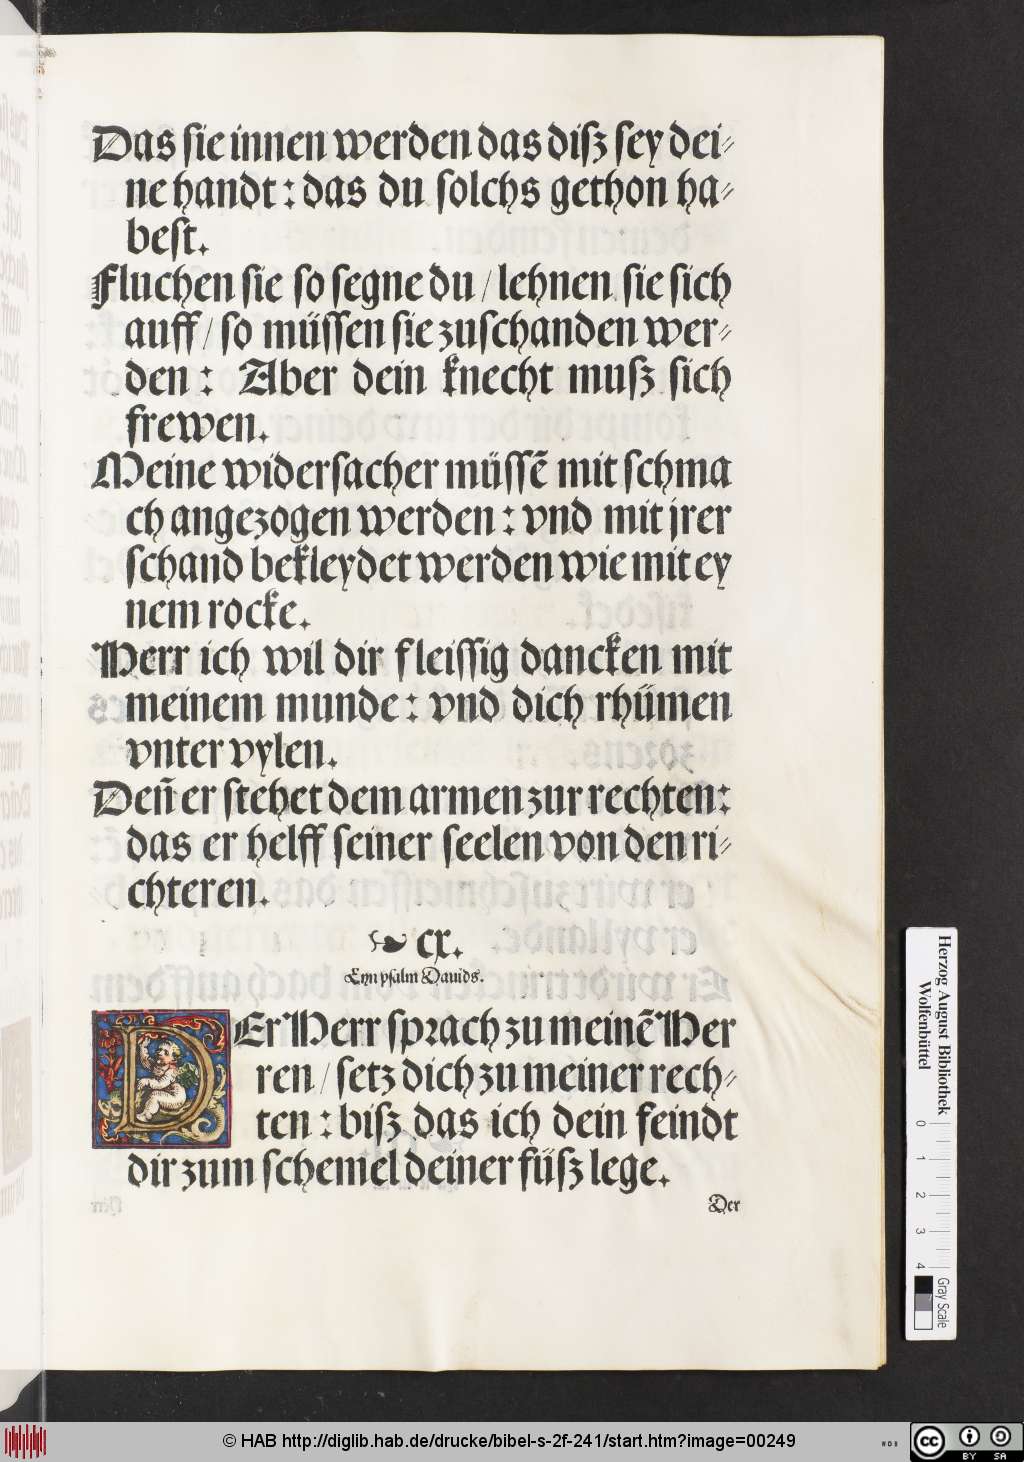 Das sie innen werden das disz sey dei⸗
ne handt : das du solchs gethon ha⸗
best.
Fluchen sie so segne du / lehnen sie sich
auff / so müssen sie zuschanden wer⸗
den : Aber dein knecht musz sich
frewen.
Meine widersacher müssē mit schma
ch angezogen werden : vnd mit jrer
schand bekleydet werden wie mit ey
nem rocke.
Herr ich wil dir fleissig dancken mit
meinem munde : vnd dich rhümen
vnter vylen.
Deñ er stehet dem armen zur rechten :
das er helff seiner seelen von den ri⸗
chteren.
CX.
Eyn psalm Dauids.
DEr Herr sprach zu meinē Her
ren / setz dich zu meiner rech⸗
ten : bisz das ich dein feindt
dir zum schemel deiner füsz lege.
Der
Herzog August Bibliothek
Wolfenbüttel
0 1 2 3 4
Gray Scale
© HAB http://diglib.hab.de/drucke/bibel-s-2f-241/start.htm?image=00249
WDB
cc BY SA